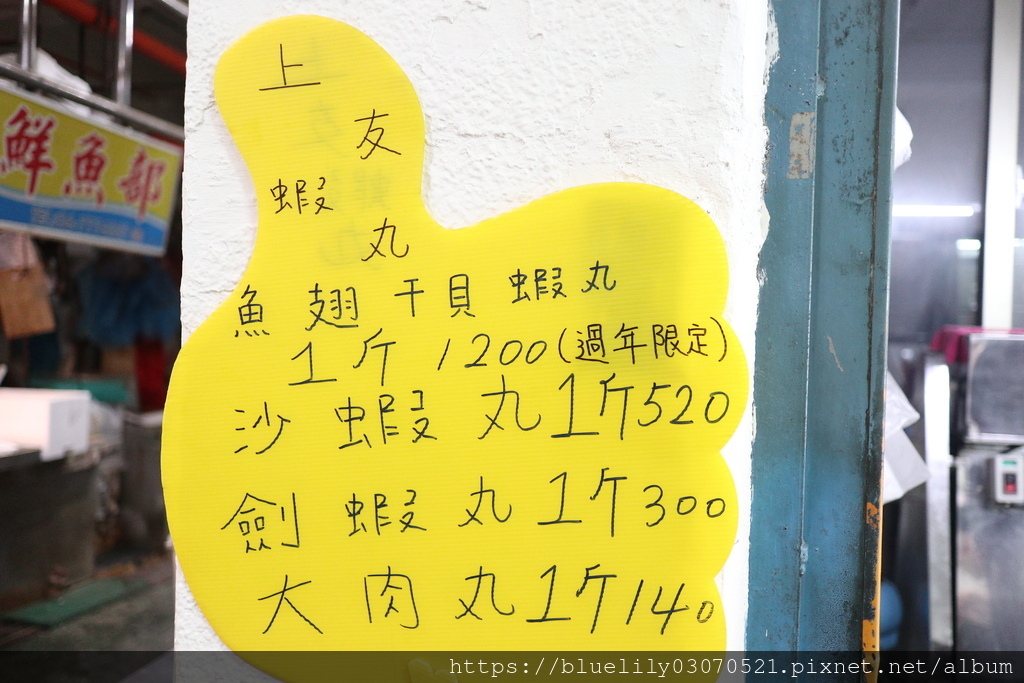 鮮魚部
上
友
蝦
丸
魚翅干貝蝦丸
1斤1200(過年限定)
沙蝦丸1斤520
劍蝦丸1斤300
大肉丸1斤140
https://bluelily03070521.pixnet.net/album